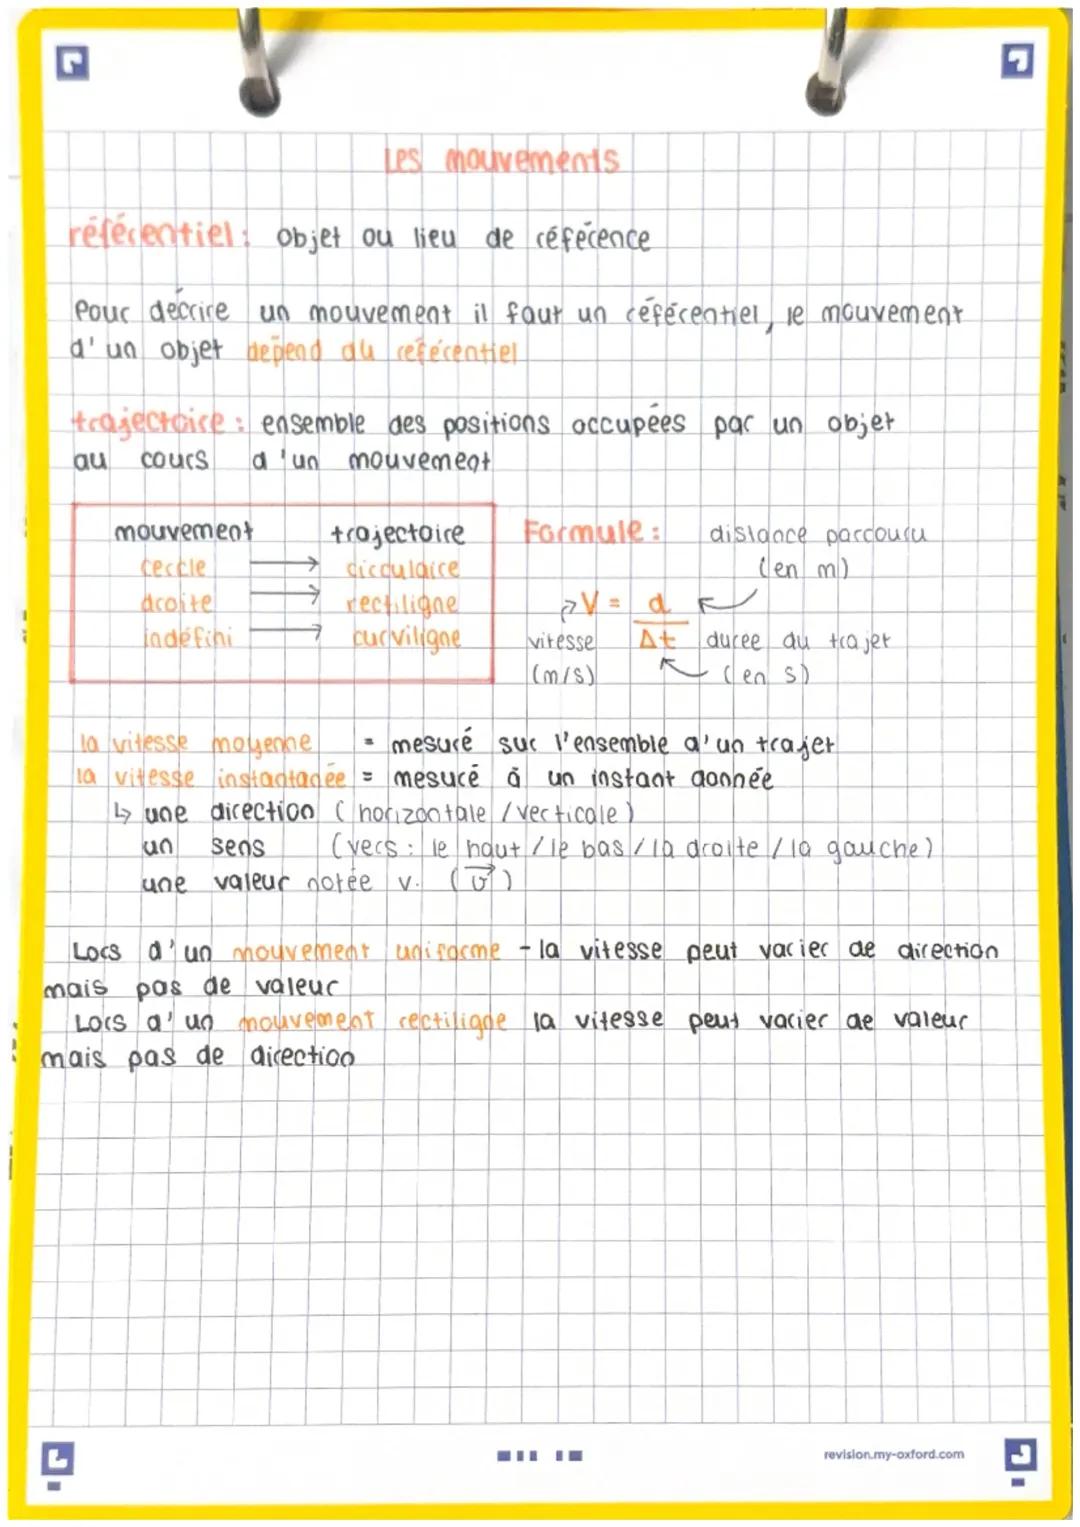 Les mouvements
référentiel : objet ou lieu de référence
Pour décrire un mouvement il faut un référentiel, le mouvement
d'un objet dépend du référentiel
trajectoire : ensemble des positions occupées par un objet
au cours d'un mouvement
mouvement trajectoire
cercle → circulaire
droite → rectiligne
indéfini → curviligne
Formule : distance parcouru
(en m)
V = d
Δt
vitesse
(m/s)
durée du trajet
(en s)
la vitesse moyenne = mesuré sur l'ensemble d'un trajet
la vitesse instantanée = mesuré à un instant donnée
↳ une direction (horizontale / verticale)
un sens (vers : le haut / le bas / la droite / la gauche)
une valeur notée v. (v⃗)
Lors d'un mouvement uniforme - la vitesse peut varier de direction
mais pas de valeur
Lors d'un mouvement rectiligne la vitesse peut varier de valeur
mais pas de direction
revision.my-oxford.com